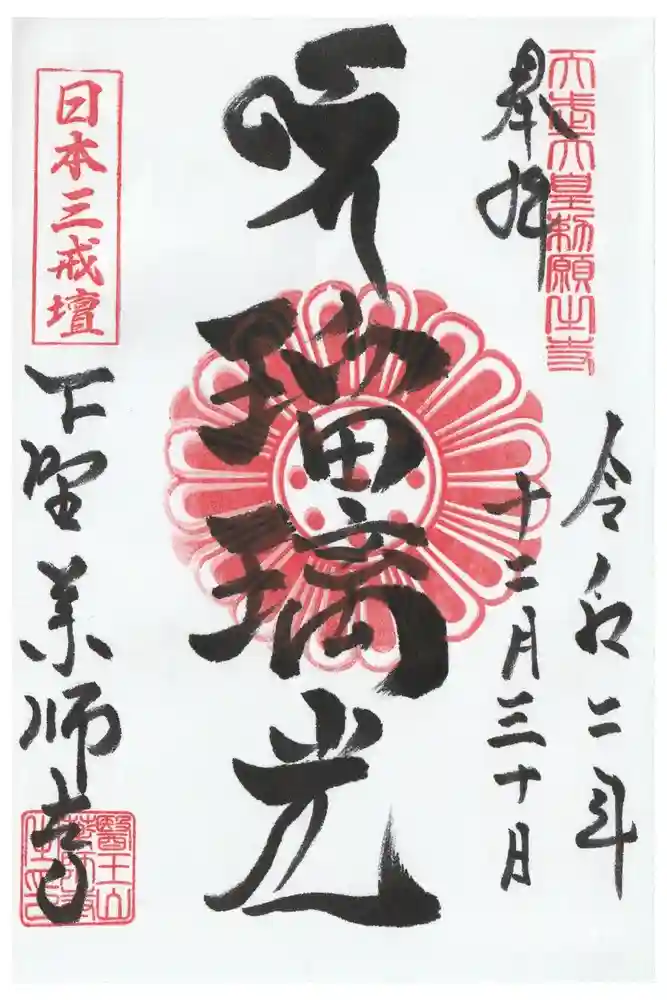 天武天皇勅願之寺
奉拝
令和二年
十二月三十日
瑠璃光
日本三戒壇
下野薬師寺
醫王山